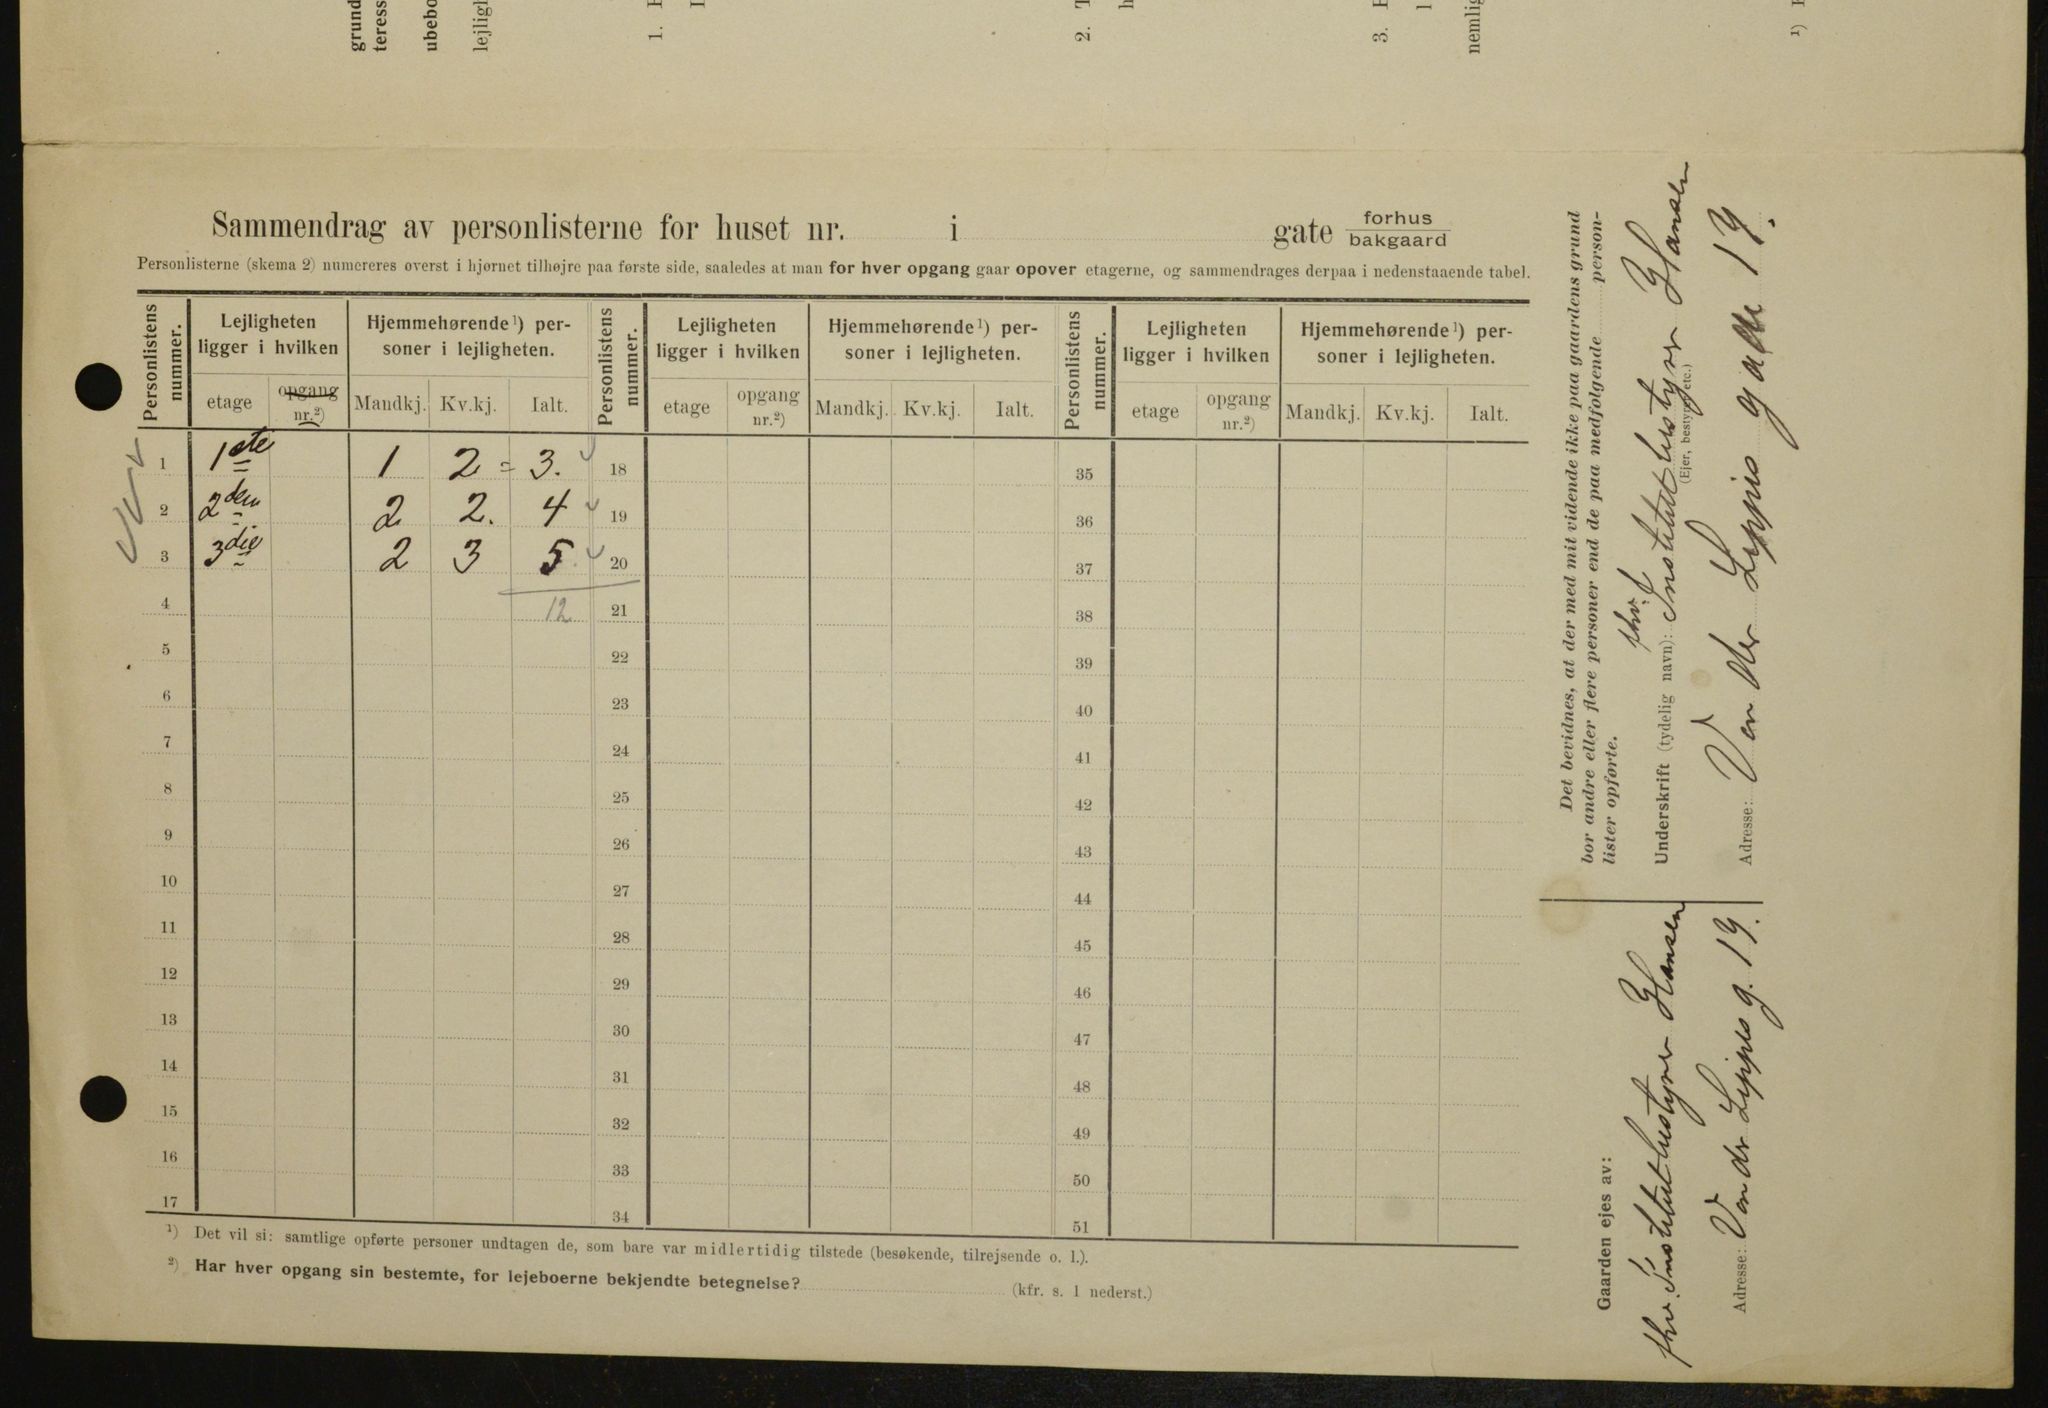 grund
teress
ubebo
lejligh
1.
2.
3.
nemlig
¹)
Sammendrag av personlisterne for huset nr. i gate forhus
bakgaard
Personlisterne (skema 2) numereres øverst i hjørnet tilhøjre paa første side, saaledes at man for hver opgang gaar opover etagerne, og sammendrages derpaa i nedenstaaende tabel.
Personlistens nummer. Lejligheten ligger i hvilken Hjemmehørende ¹) personer i lejligheten. Personlistens nummer. Lejligheten ligger i hvilken Hjemmehørende ¹) personer i lejligheten. Personlistens nummer. Lejligheten ligger i hvilken Hjemmehørende ¹) personer i lejligheten.
etage opgang nr.²) Mandkj. Kv.kj. Ialt. etage opgang nr.²) Mandkj. Kv.kj. Ialt. etage opgang nr.²) Mandkj. Kv.kj. Ialt.
1 1ste 1 2 = 3. 18 35
2 2den 2 2. 4 19 36
3 3die 2 3 5. 20 37
4 12 21 38
5 22 39
6 23 40
7 24 41
8 25 42
9 26 43
10 27 44
11 28 45
12 29 46
13 30 47
14 31 48
15 32 49
16 33 50
17 34 51
¹) Det vil si: samtlige opførte personer undtagen de, som bare var midlertidig tilstede (besøkende, tilrejsende o. l.).
²) Har hver opgang sin bestemte, for lejeboerne bekjendte betegnelse? (kfr. s. 1 nederst.)
Det bevidnes, at der med mit vidende ikke paa gaardens grund
bor andre eller flere personer end de paa medfølgende person-
lister opførte.
fhv.
Underskrift (tydelig navn): Institutbestyrer Hansen
(Ejer, bestyrer etc.)
Adresse: Van der Lippes gade 19.
Gaarden ejes av:
fhv. Institutbestyrer Hansen
Adresse: Van dr Lippes g. 19.